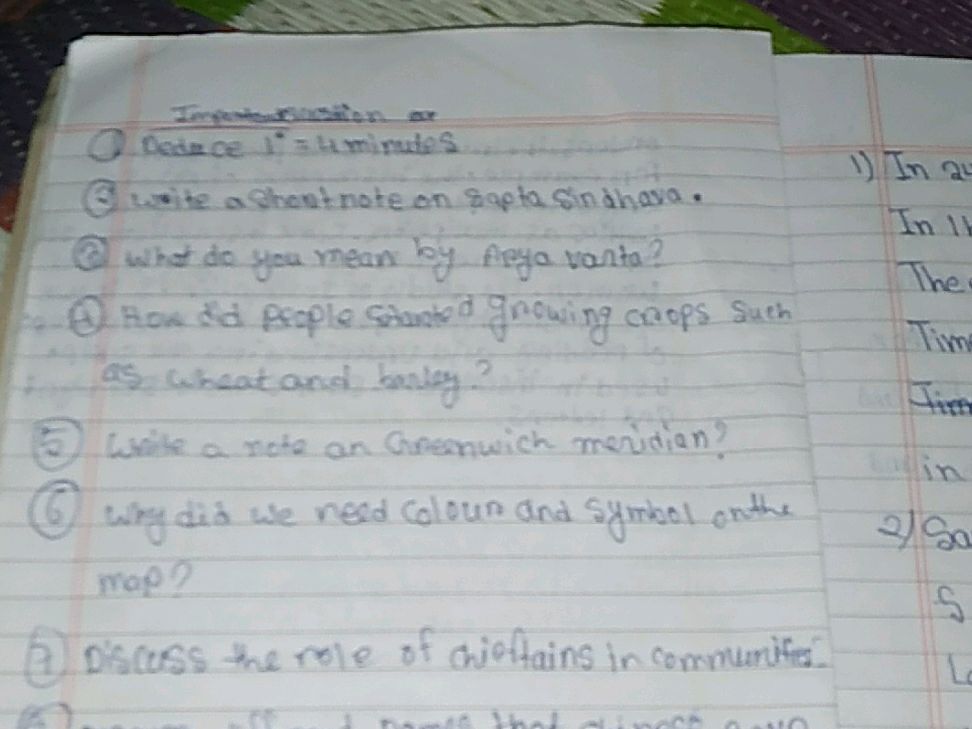 ① Deduce 1° = 4 minutes
② write a short note on Sapta Sindhava.
③ What do you mean by Arya varta?
④ How did people started growing crops such
as wheat and barley?
⑤ Write a note on Greenwich meridian?
⑥ Why did we need colour and symbol on the
map?
⑦ Discuss the role of chieftains in communities.
names that
1) In 24
In 1
The
Tim
Tim
in
2) Sa
S